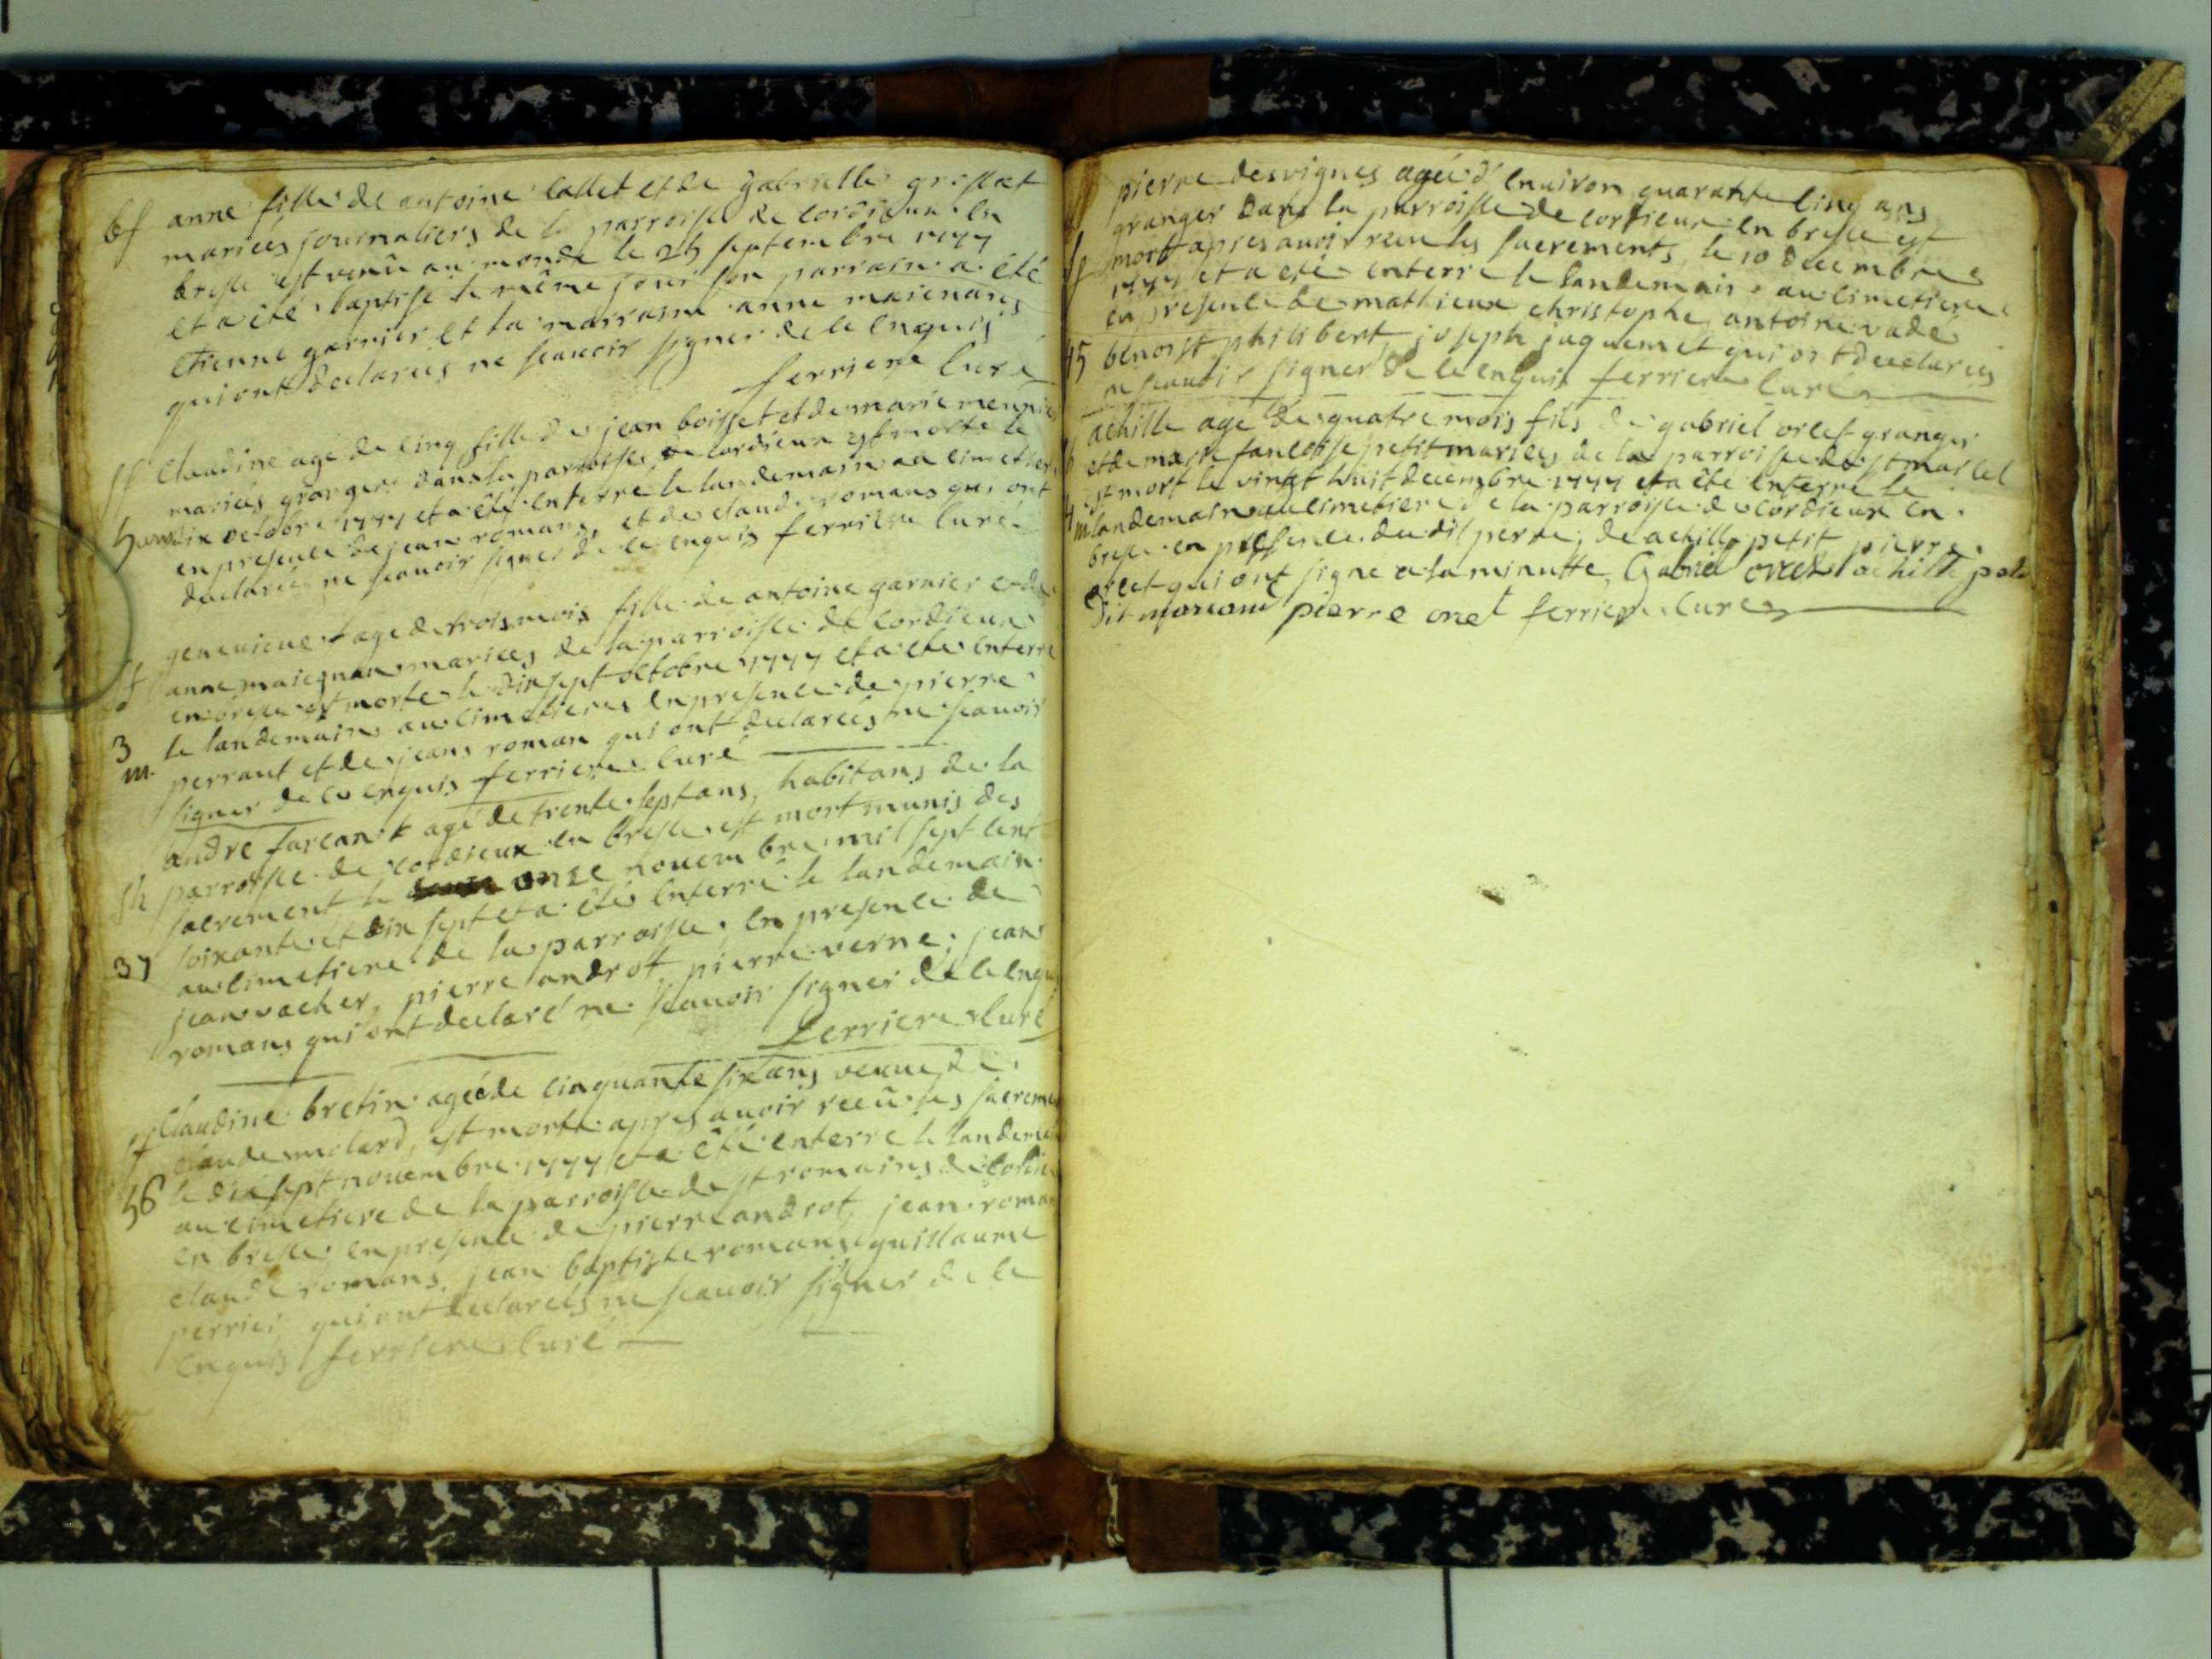 bf anne fille de antoine collet et de gabrielle grissat
mariées journaliers de la parroisse de cordieux en
bresse est venû au monde le 25 septembre 1777
et a été baptisé le même jour son parrain a été
etienne garnier et la marraine anne maignans
qui ont declareés ne scauoir signer de ce enquis
ferriere curé
sf Claudine age de cinq fille de jean boisset et de marie meunier
mariés granger dans la parroisse de cordieux est morte le
5 dix octobre 1777 et a été enterre le landemain au cimetiere
en presence de jean romans, et de claude romans qui ont
declarée ne scauoir signer de ce enquis ferriere curé
genevieve age de trois mois fille de antoine garnier et de
sf anne maignan mariées de la parroisse de cordieux
en bresse est morte le dix sept octobre 1777 et a été enterre
3 le landemain au cimetiere en presence de pierre
m. perraut et de jeans roman qui ont declareés ne scauoir
signer de ce enquis ferriere curé
andre farcant agé de trente sept ans, habitans de la
sh parroisse de cordieux en bresse est mort munis des
sacrement le onze novembre mil sept cent
soixante et dix sept et a été enterré le landemain
37 au cimetiere de la parroisse en presence de
jean vacher, pierre androt, pierre verne, jean
romans qui ont declaré ne scauoir signer de ce enquis
ferriere curé
sf Claudine bretin ageé de cinquante six ans veuue de
claude molard, est morte apres auoir receû les sacremen
56 le dix sept novembre 1777 et a été enterré le landemai
au cimetiere de la parroisse de st romains de cordieu
en bresse en presence de pierre androt, jean roman
claude romans, jean baptiste romans guillaume
perrier qui ont declareés ne scauoir signer de ce
enquis ferriere curé
pierre desvignes ageé d'enuiron quarante cinq ans
granger dans la parroisse de cordieux en bresse est
mort apres auoir receu les sacrements le 10 decembre
1777 et a été enterré le landemain au cimetiere
en presence de mathieux christophe, antoine vade
45 benoist philibert, joseph jaquemet qui ont declareés
ne scauoir signer de ce enquis ferriere curé
achille age de quatre mois fils de gabriel orcet granger
et de marie francoise petit mariées de la parroisse de st marcel
est mort le vingt huit decembre 1777 et a été enterré le
4 m landemain au cimetiere de la parroisse de cordieux en
bresse en presence du dit perre, de achille petit pierre
orcet qui ont signe a la minutte, Gabriel orcet achille peti
dit pierre orcet ferriere curé